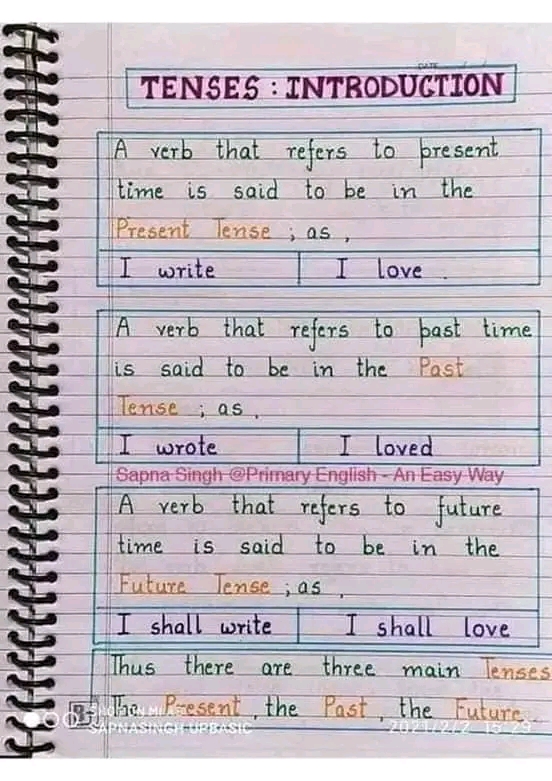 DATE
TENSES : INTRODUCTION
A verb that refers to present
time is said to be in the
Present Tense ; as ,
I write I love .
A verb that refers to past time
is said to be in the Past
Tense ; as ,
I wrote I loved
Sapna Singh @Primary English - An Easy Way
A verb that refers to future
time is said to be in the
Future Tense ; as ,
I shall write I shall love
Thus there are three main Tenses
The Present , the Past , the Future
SHOT ON MI
SAPNASINGH UPBASIC 2021/2/2 15:29